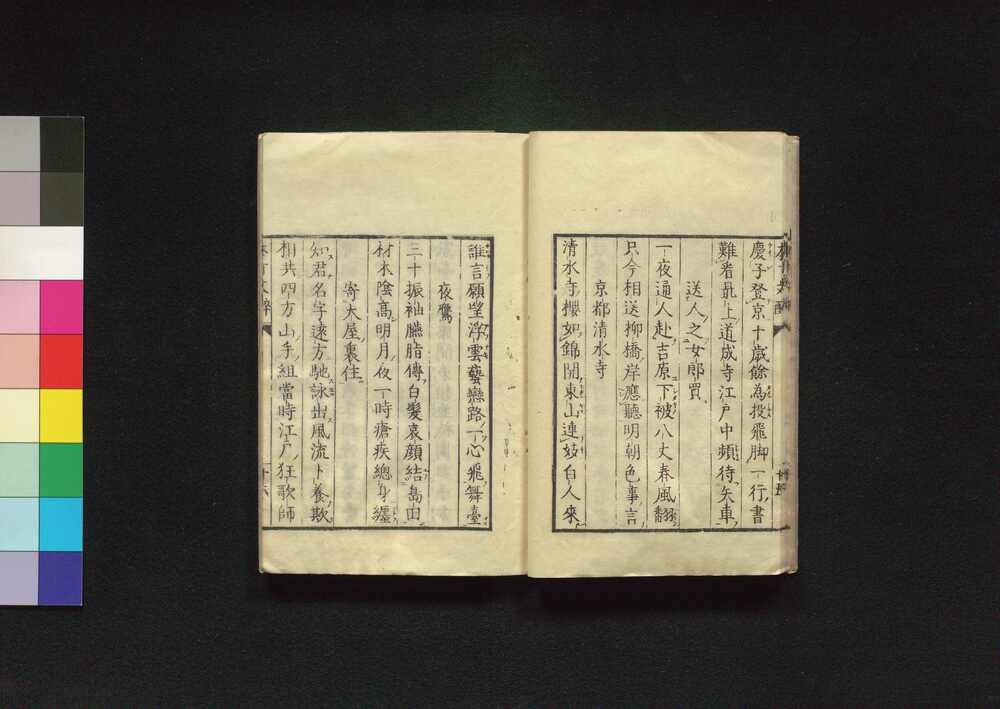 慶子登京十歳餘為投飛脚一行書
難着最上道成寺江戸中頻待矢車
送人之女郎買
一夜通人赴吉原下被八丈春風翻
只今相送柳橋岸應聽明朝色事言
京都清水寺
清水寺櫻如錦開東山連妓白人來
誰言願望浮雲藝戀路一心飛舞臺
夜鷹
三十振袖臙脂傳白髮衰顔結島田
材木陰高明月夜一時瘡疾總身纏
寄大屋裏住
知君名字遠方馳詠出風流卜養欺
相共四方山手組當時江戸狂歌師